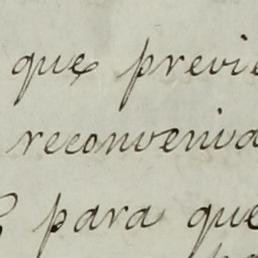 que previe
reconvenida
para que